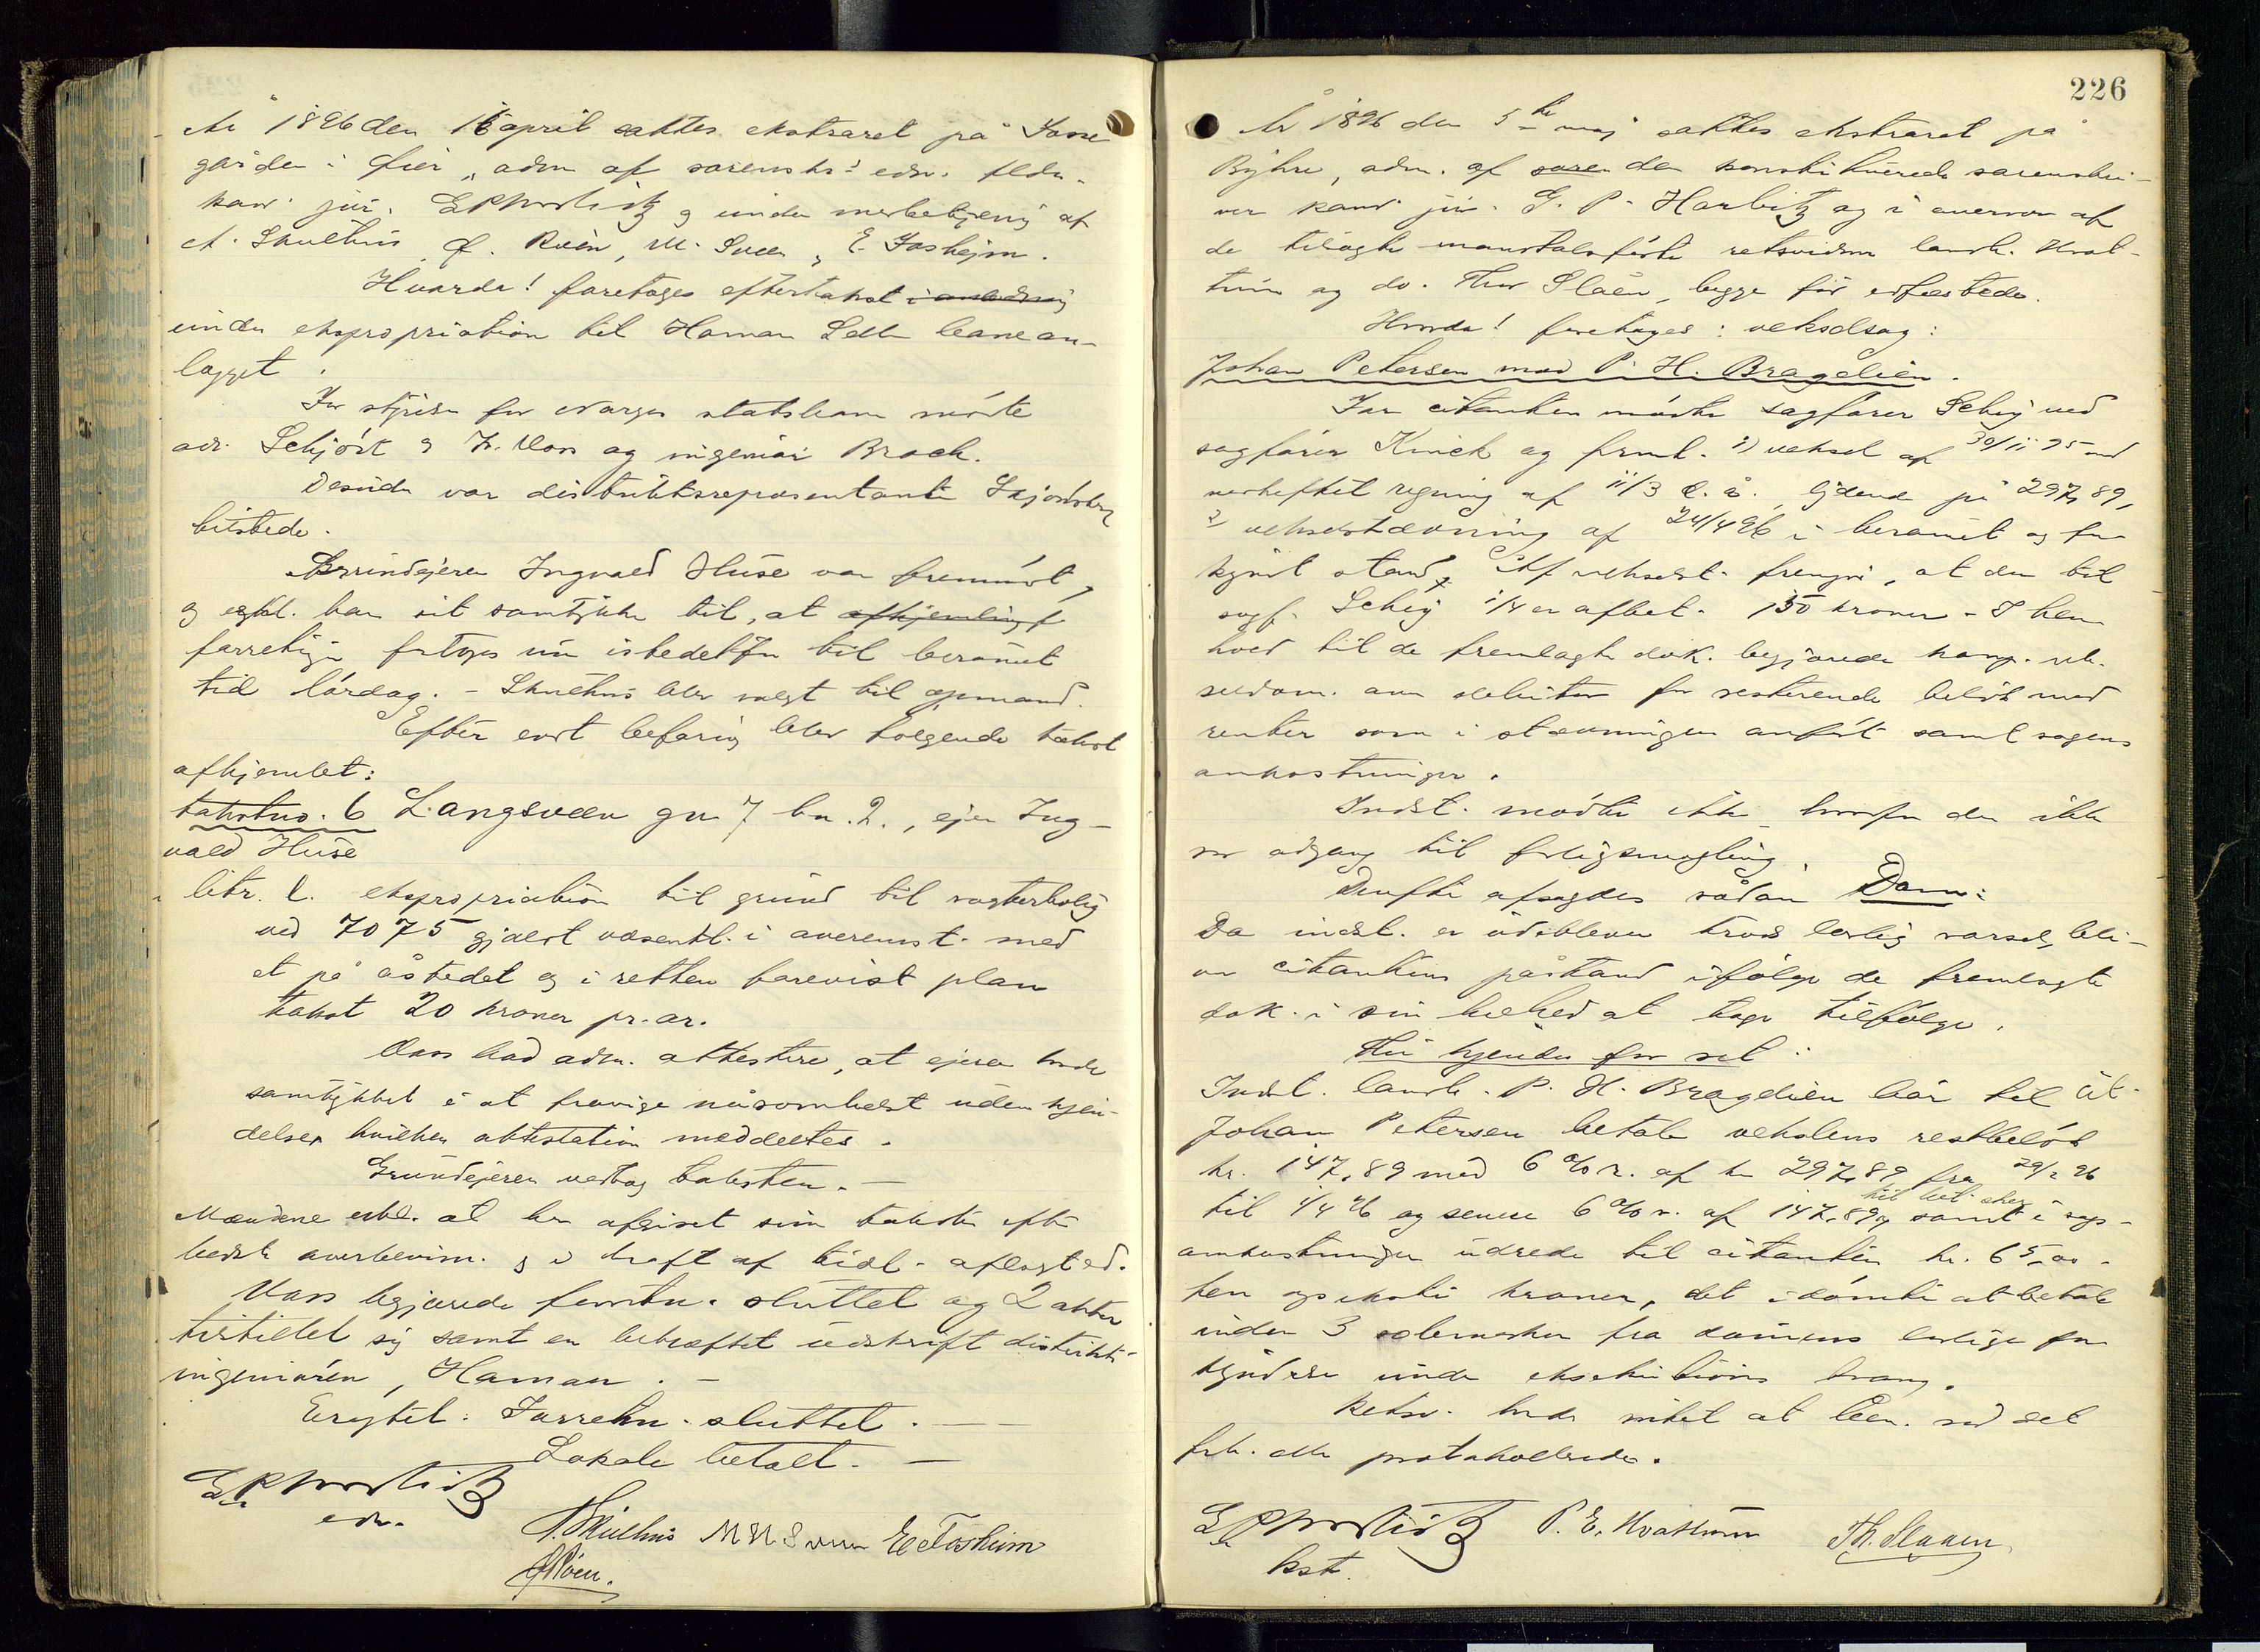 År 1896 den 16 april sattes ekstraret på Fosse
gården i Øier, adm af sorenskr's edsv. fldm.
kand. jur. G P Harbitz og under medbetjening af
A. Skulhus, O. Roen, M. Sveen, E. Fosheim.
Hvorda! foretoges eftertakst i anledning
under ekspropriation til Hamar Sells baneanlægget.
For styrelsen for Norges statsbane mødte
adv. Schjødt v. Fr. Voss og ingeniør Broch.
Desuden var distriktsrepræsentanten
tilstede.
Grundejeren Ingvald Huse var fremmødt,
og erkl. han sit samtykke til, at afhjemling f
forretnign foretoges nu istedetfor til berammet
tid lørdag. – Skulhus blev valgt til opmand.
Efter endt befaring blev følgende takst
afhjemlet:
takstno. 6 Langsveen gn 7 bn. 2., ejer Ing-
vald Huse
litr. l. ekspropriation til grund til vogterbolig
ved 7075 gjælder væsentl. i overenst. med
et på åstedet og i retten forevist plan
takst 20 kroner pr. ar.
Voss bad adm. attestere, at ejeren havde
samtykket i at fravige såsomhelst uden kjen-
delse, hvilken attestation meddeltes.
Grundejeren vedtog taksten. –
Mændene erkl. at ha afgivet sin takst efter
bedste overbevisn. og i kraft af tidl. aflagt ed.
Voss begjærede forretn. sluttet og 2 akter
tilstillet sig samt en bekræftet udskrift distrikts-
ingeniøren, Hamar. –
Eragtet: Forretn. sluttet. –
Lokale betalt. –
G P Harbitz
edsv.
A. Skulhus M N Sveen E Fosheim
O Roen.
226
År 1896 den 5te maj sattes ekstraret på
Byhre, adm. af soren den konstituerede sorenskri-
ver kand. jur. G. P. Harbitz og i overvær af
de tilsagte mandtalsførte retsvidner landh. Hvat-
tum og do. Thor Slåen, begge før edfæstede.
Hvorda! foretoges: vekselsag:
Johan Petersen mod P. H. Bragelien.
For citanten mødte sagfører Scheig ved
sagfører Kinck og freml. 1) veksel af 30/11 95 med
vedheftet regning af 11/3 d. å., lydende på 297,89,
2) vekselstævning af 24/4 96 i berammet og for-
kyndt stand. Af vekselst. fremgår, at der til
sagf. Scheig 1/4 er afbet. 150 kroner. – I hen-
hold til de fremlagte dok. begjærede komp. vek-
seldom over debitor for resterende beløb med
renter som i stævningen anført samt sagens
omkostninger.
Indst. mødte ikke, hvorfor der ikke
var adgang til forligsmægling.
Derefter afsagdes sådan Dom:
Da indst. er udebleven trods lovlig varsel, bli-
ver citantens påstand ifølge de fremlagte
dok. i sin helhed at tage tilfølge.
Thi kjendes for ret:
Indst. landh. P. H. Bragelien bør til cit.
Johan Petersen betale vekslens restbeløb
kr. 147,89 med 6 % r. af kr 297,89 fra 29/2 96
til 1/4 96 og senere 6 % r. af 147,89 til bet. sker, samt i sags-
omkostninger udrede til citanten kr. 65,00 –
fem og seksti kroner, det idømte at betale
inden 3 solemerker fra dommens lovlige for-
kyndelse under eksekutions tvang.
Retsv. havde intet at bem. ved det
for dem protokollerede.
G P Harbitz P. E. Hvattum Th. Slaaen
kst.